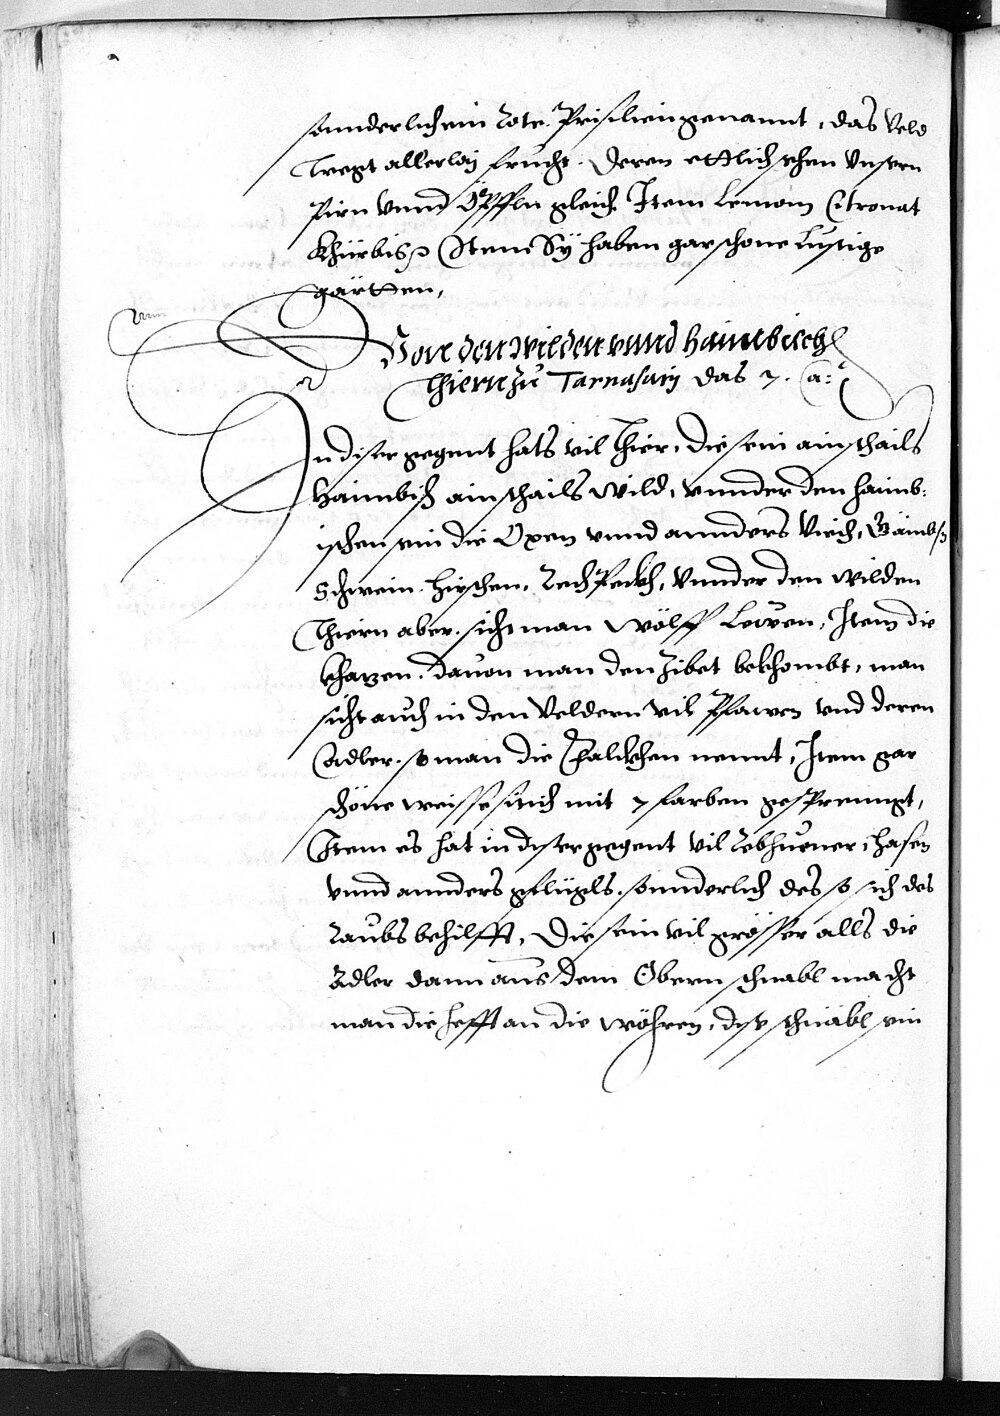 sonnderlich ein Rote Prisilien genannt, das Veld
Tregt allerlaÿ frücht. Deren ettlich sehen Unsern
Pirn vnnd Öpffln gleich. Item Lemoin Citronat
Khürbiss Item Sÿ haben gar schone Lustige
gärtten,
Von den Wilden vnnd haimbisch
Thiern zu Tarnasarÿ das 7. Ca:
In diser gegent hats vil Thier, die sein ainsthails
haimbisch ainsthails wild, vnnder den haimb:
ischen sein die Oxen vnnd annders Viech, Gämbs
Schwein Hirschen, Rech Peckh, Vnnder den wilden
Thiern aber sicht man Wölff Lewen, Item die
khazen dauon man den Zibet bekhombt, man
sicht auch in den Veldern vil Pfawen vnd deren
Adler so man die Falckhen nennt, Item gar
schöne weisse sitich mit 7 farben gesprenngt,
Item es hat in diser gegent vil Rebhuener, hasen
vnnd annders geflügls, sonnderlich des so sich des
Raubs behilfft, Die sein vil grösser alls die
Adler dann aus dem Obern schnabl macht
man die hefft an die wöhren, dise schnäbl sein